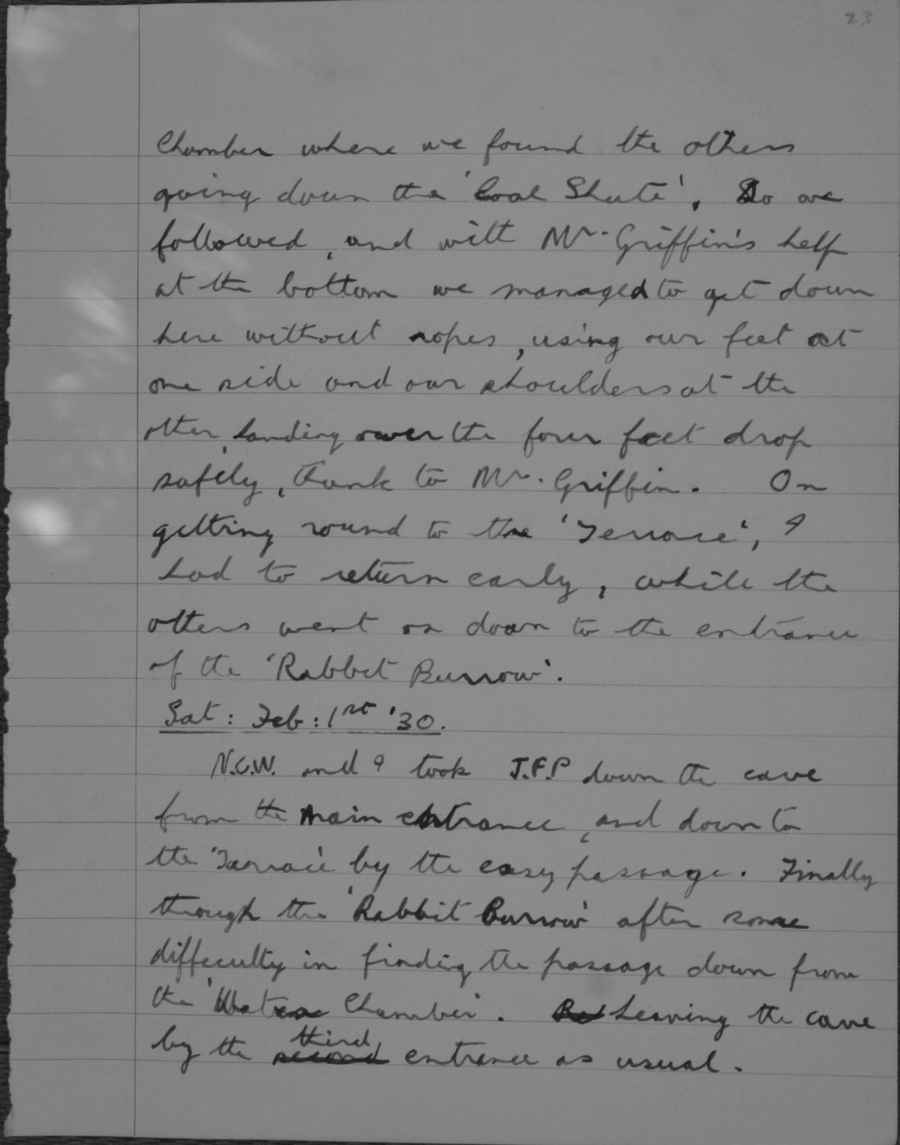 23
Chamber where we found the others
going down the 'Coal Shute'. So we
followed, and with Mr. Griffin's help
at the bottom we managed to get down
here without ropes, using our feet at
one side and our shoulders at the
other, landing over the four feet drop
safely, thank to Mr. Griffin. On
getting round to the 'Terrace', I
had to return early, while the
others went on down to the entrance
of the 'Rabbit Burrow'.
Sat: Feb: 1st '30.
N.C.W. and I took J.F.P down the cave
from the main entrance, and down to
the 'Terrace' by the easy passage. Finally
through the 'Rabbit Burrow' after some
difficulty in finding the passage down from
the 'Water Chamber'. Leaving the cave
by the second third entrance as usual.